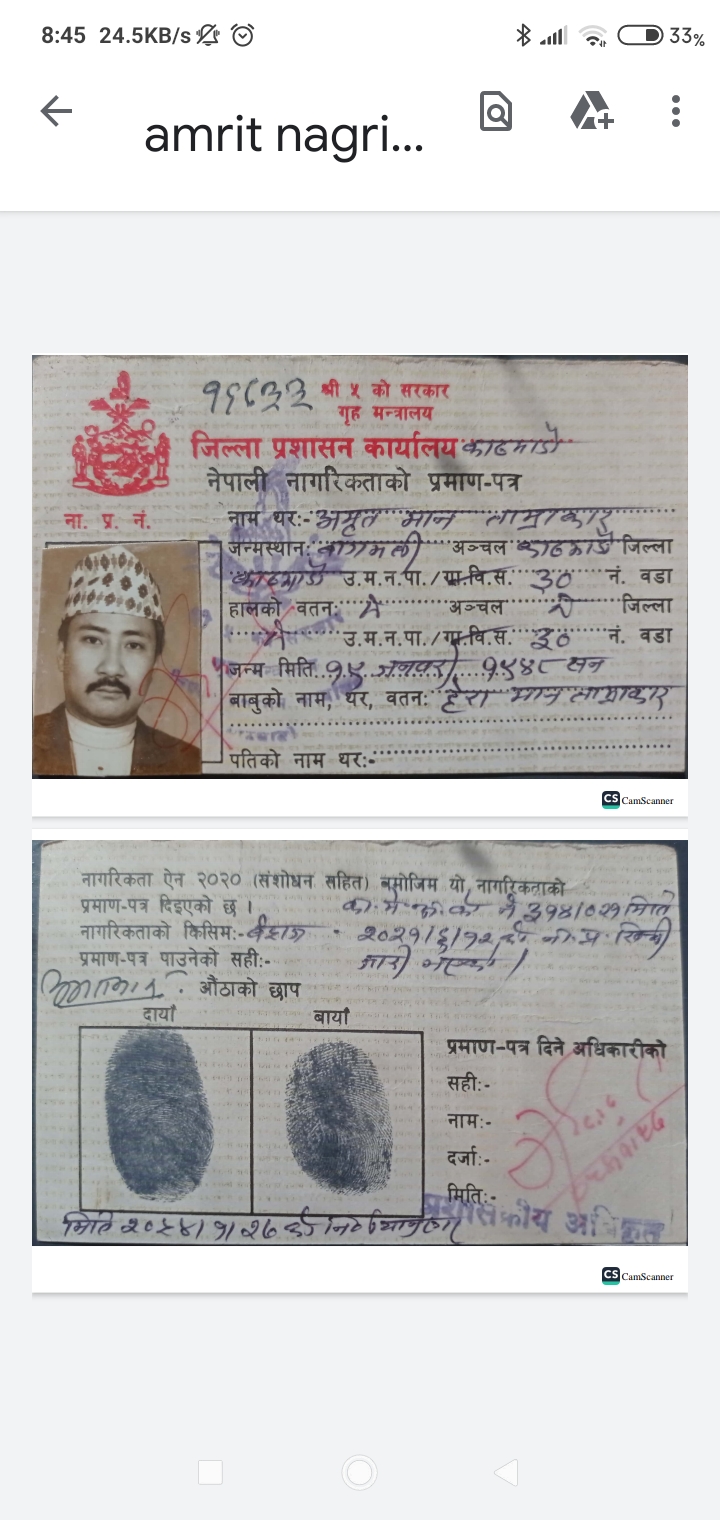 8:45 24.5KB/s 33%
amrit nagri...
श्री ५ को सरकार
गृह मन्त्रालय
जिल्ला प्रशासन कार्यालय काठमाडौं
नेपाली नागरिकताको प्रमाण-पत्र
ना. प्र. नं.
नाम थर:- अमृत मान ताम्राकार
जन्मस्थान: बागमती अञ्चल काठमाडौं जिल्ला
काठमाडौं उ.म.न.पा./गा.वि.स. ३० नं. वडा
हालको वतन: ऐ अञ्चल ऐ जिल्ला
ऐ उ.म.न.पा./गा.वि.स. ३० नं. वडा
जन्म मिति १५ जनवरी १९४८ सन
बाबुको नाम, थर, वतन: हेरा मान ताम्राकार
पतिको नाम थर:-
CS CamScanner
नागरिकता ऐन २०२० (संशोधन सहित) बमोजिम यो नागरिकताको
प्रमाण-पत्र दिइएको छ ।
नागरिकताको किसिम:- वंशज
प्रमाण-पत्र पाउनेको सही:-
औंठाको छाप
दायाँ बायाँ
प्रमाण-पत्र दिने अधिकारीको
सही:-
नाम:-
दर्जा:-
मिति:-
प्रशासकीय अधिकृत
CS CamScanner